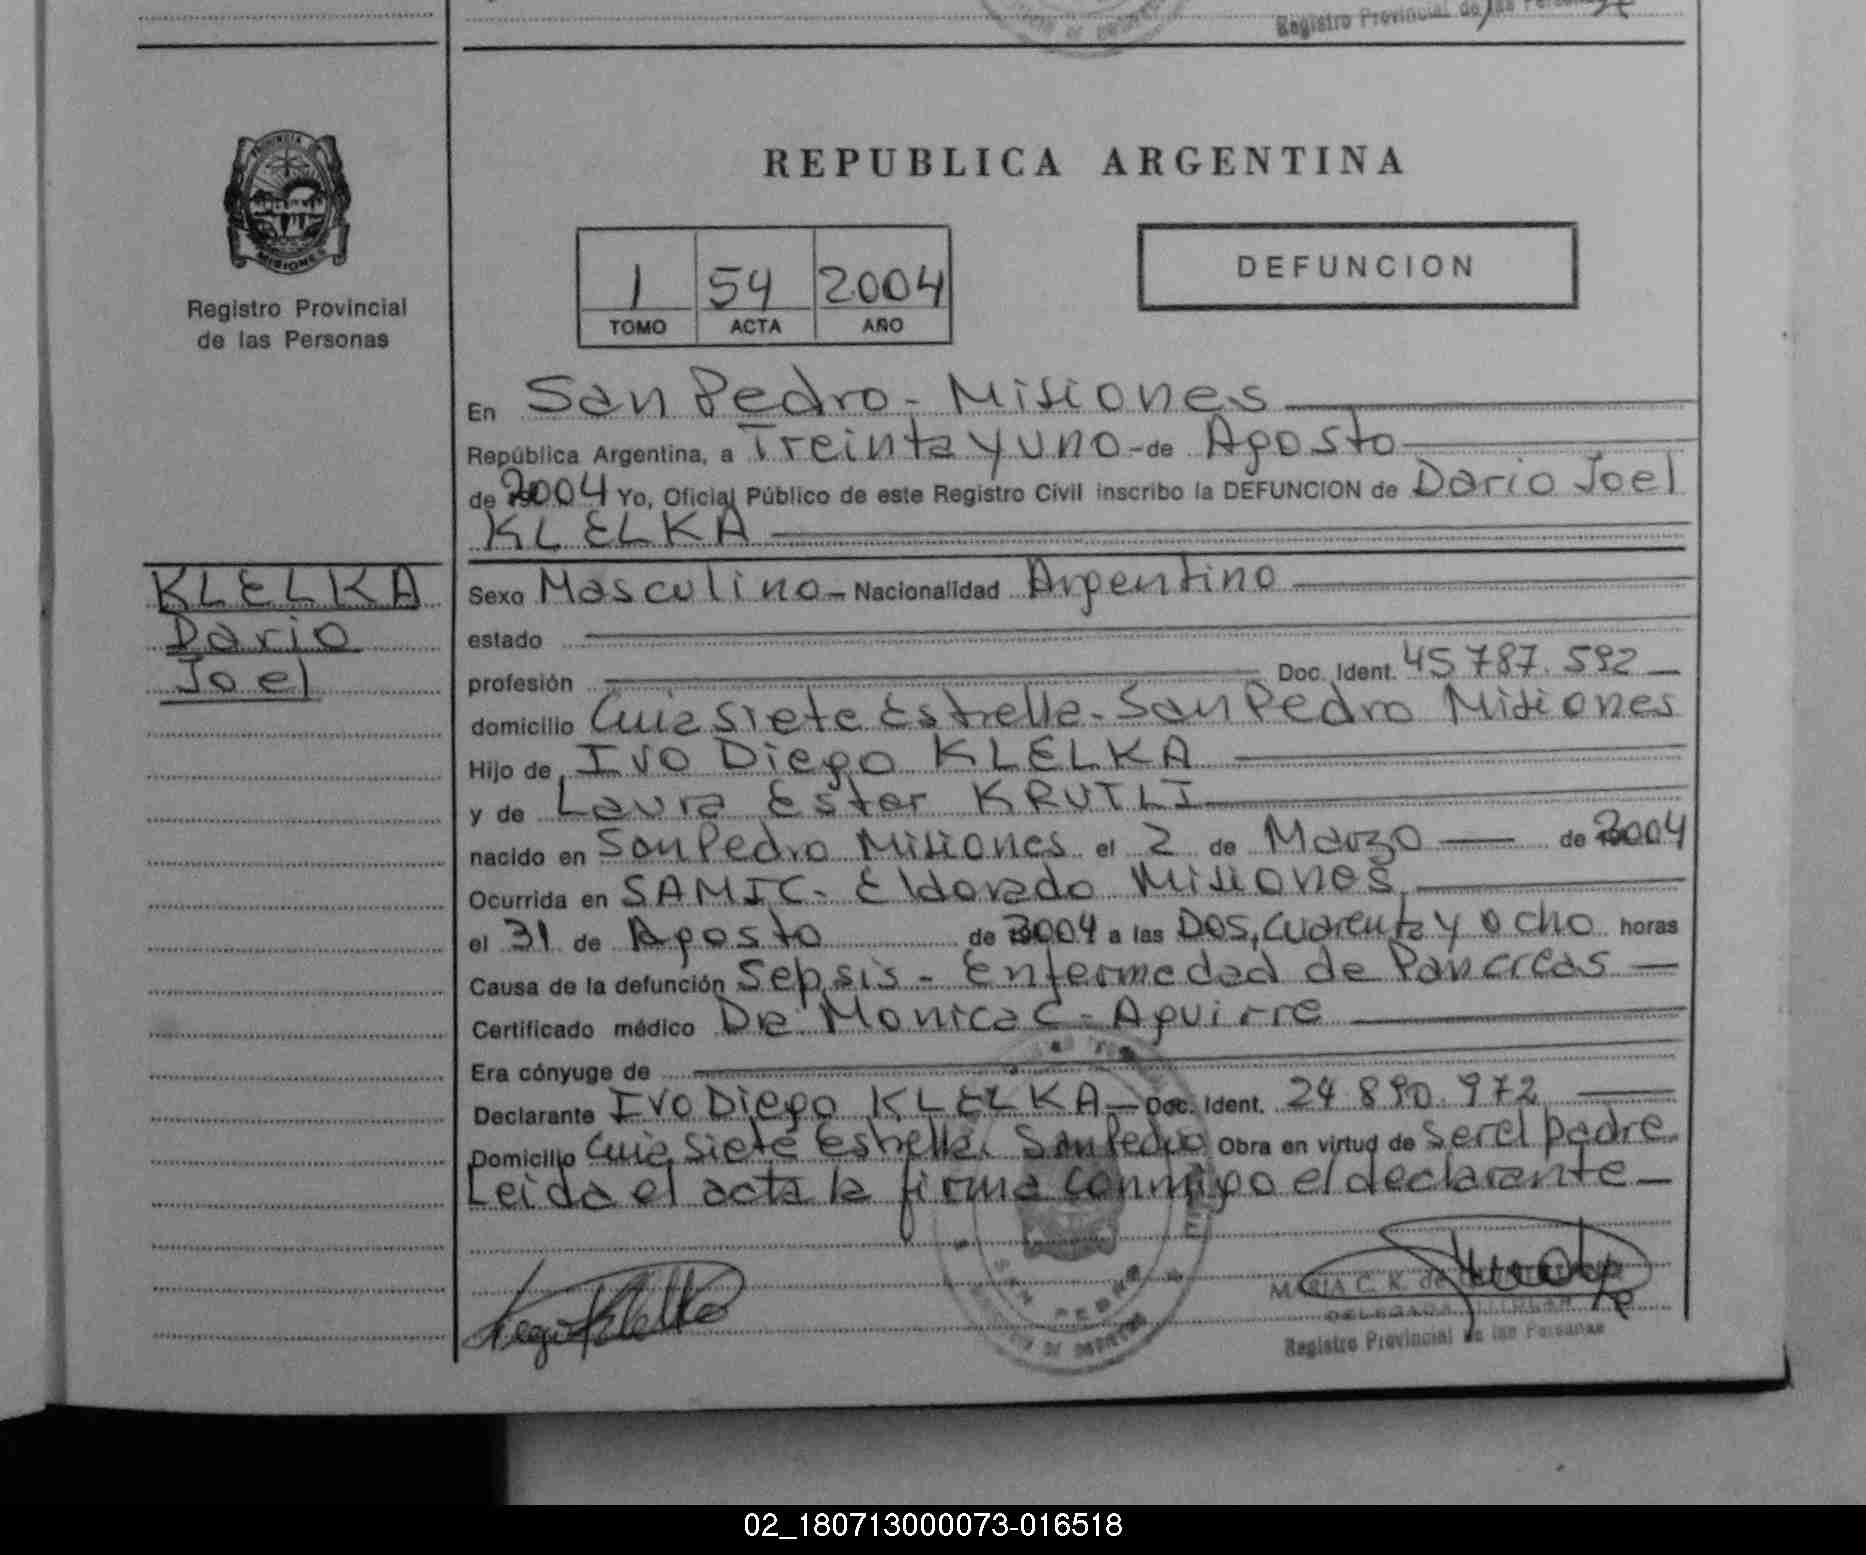 Registro Provincial de las Personas
REPUBLICA ARGENTINA
PROVINCIA DE
MISIONES
Registro Provincial
de las Personas
1 54 2004
TOMO ACTA AÑO
DEFUNCION
En San Pedro - Misiones
República Argentina, a Treinta y uno - de Agosto
de 2004 Yo, Oficial Público de este Registro Civil inscribo la DEFUNCION de Dario Joel
KLELKA
KLELKA
Dario
Joel
Sexo Masculino - Nacionalidad Argentino
estado
profesión Doc. Ident. 45 787. 592
domicilio Guia Siete Estrella - San Pedro Misiones
Hijo de Ivo Diego KLELKA
y de Laura Ester KRUTLI
nacido en San Pedro Misiones el 2 de Marzo de 2004
Ocurrida en SAMIC - Eldorado Misiones
el 31 de Agosto de 2004 a las Dos, cuarenta y ocho horas
Causa de la defunción Sepsis - Enfermedad de Pancreas
Certificado médico Dra Monica C - Aguirre
Era cónyuge de
Declarante Ivo Diego KLELKA - Doc. Ident. 24 890. 972
Domicilio Guia Siete Estrella. San Pedro Obra en virtud de ser el padre.
Leida el acta la firma conmigo el declarante
SAN PEDRO
MARIA C. K. de
DELEGADA TITULAR
Registro Provincial de las Personas
02_180713000073-016518